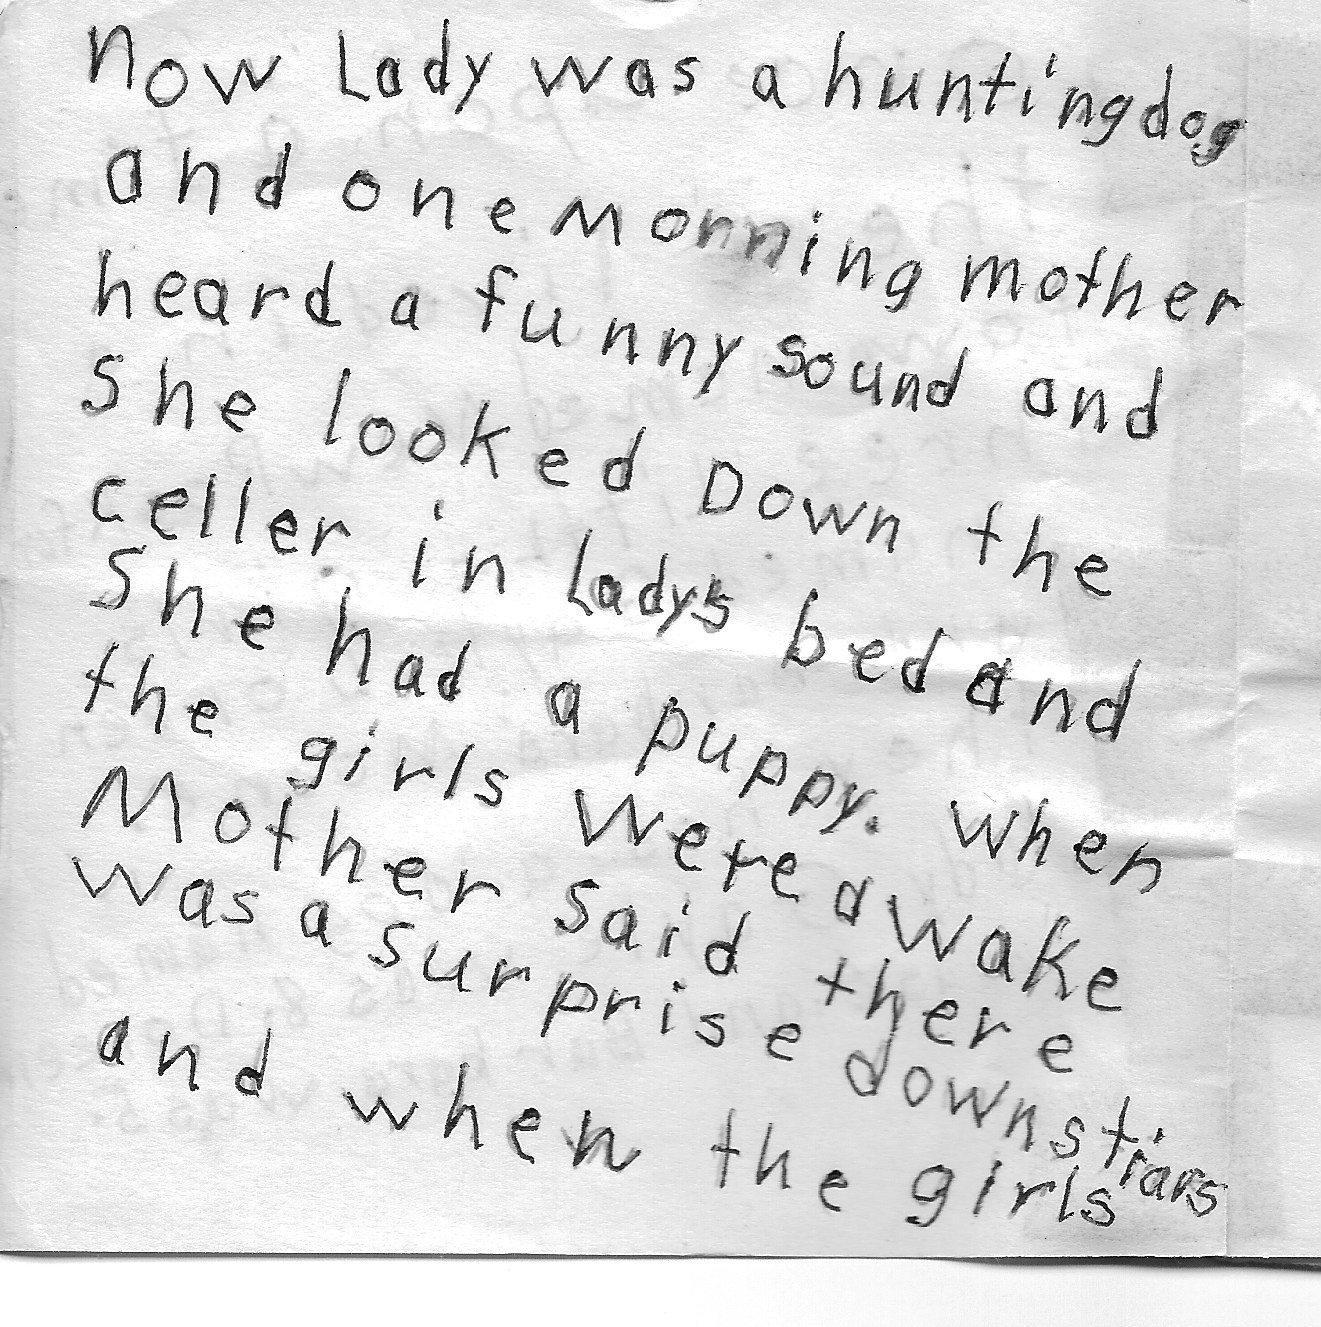 now Lady was a hunting dog
and one Monning mother
heard a funny sound and
She looked Down the
celler in Lady's bed and
She had a puppy. when
the girls Were awake
Mother said there
was a surprise downstiars
and when the girls